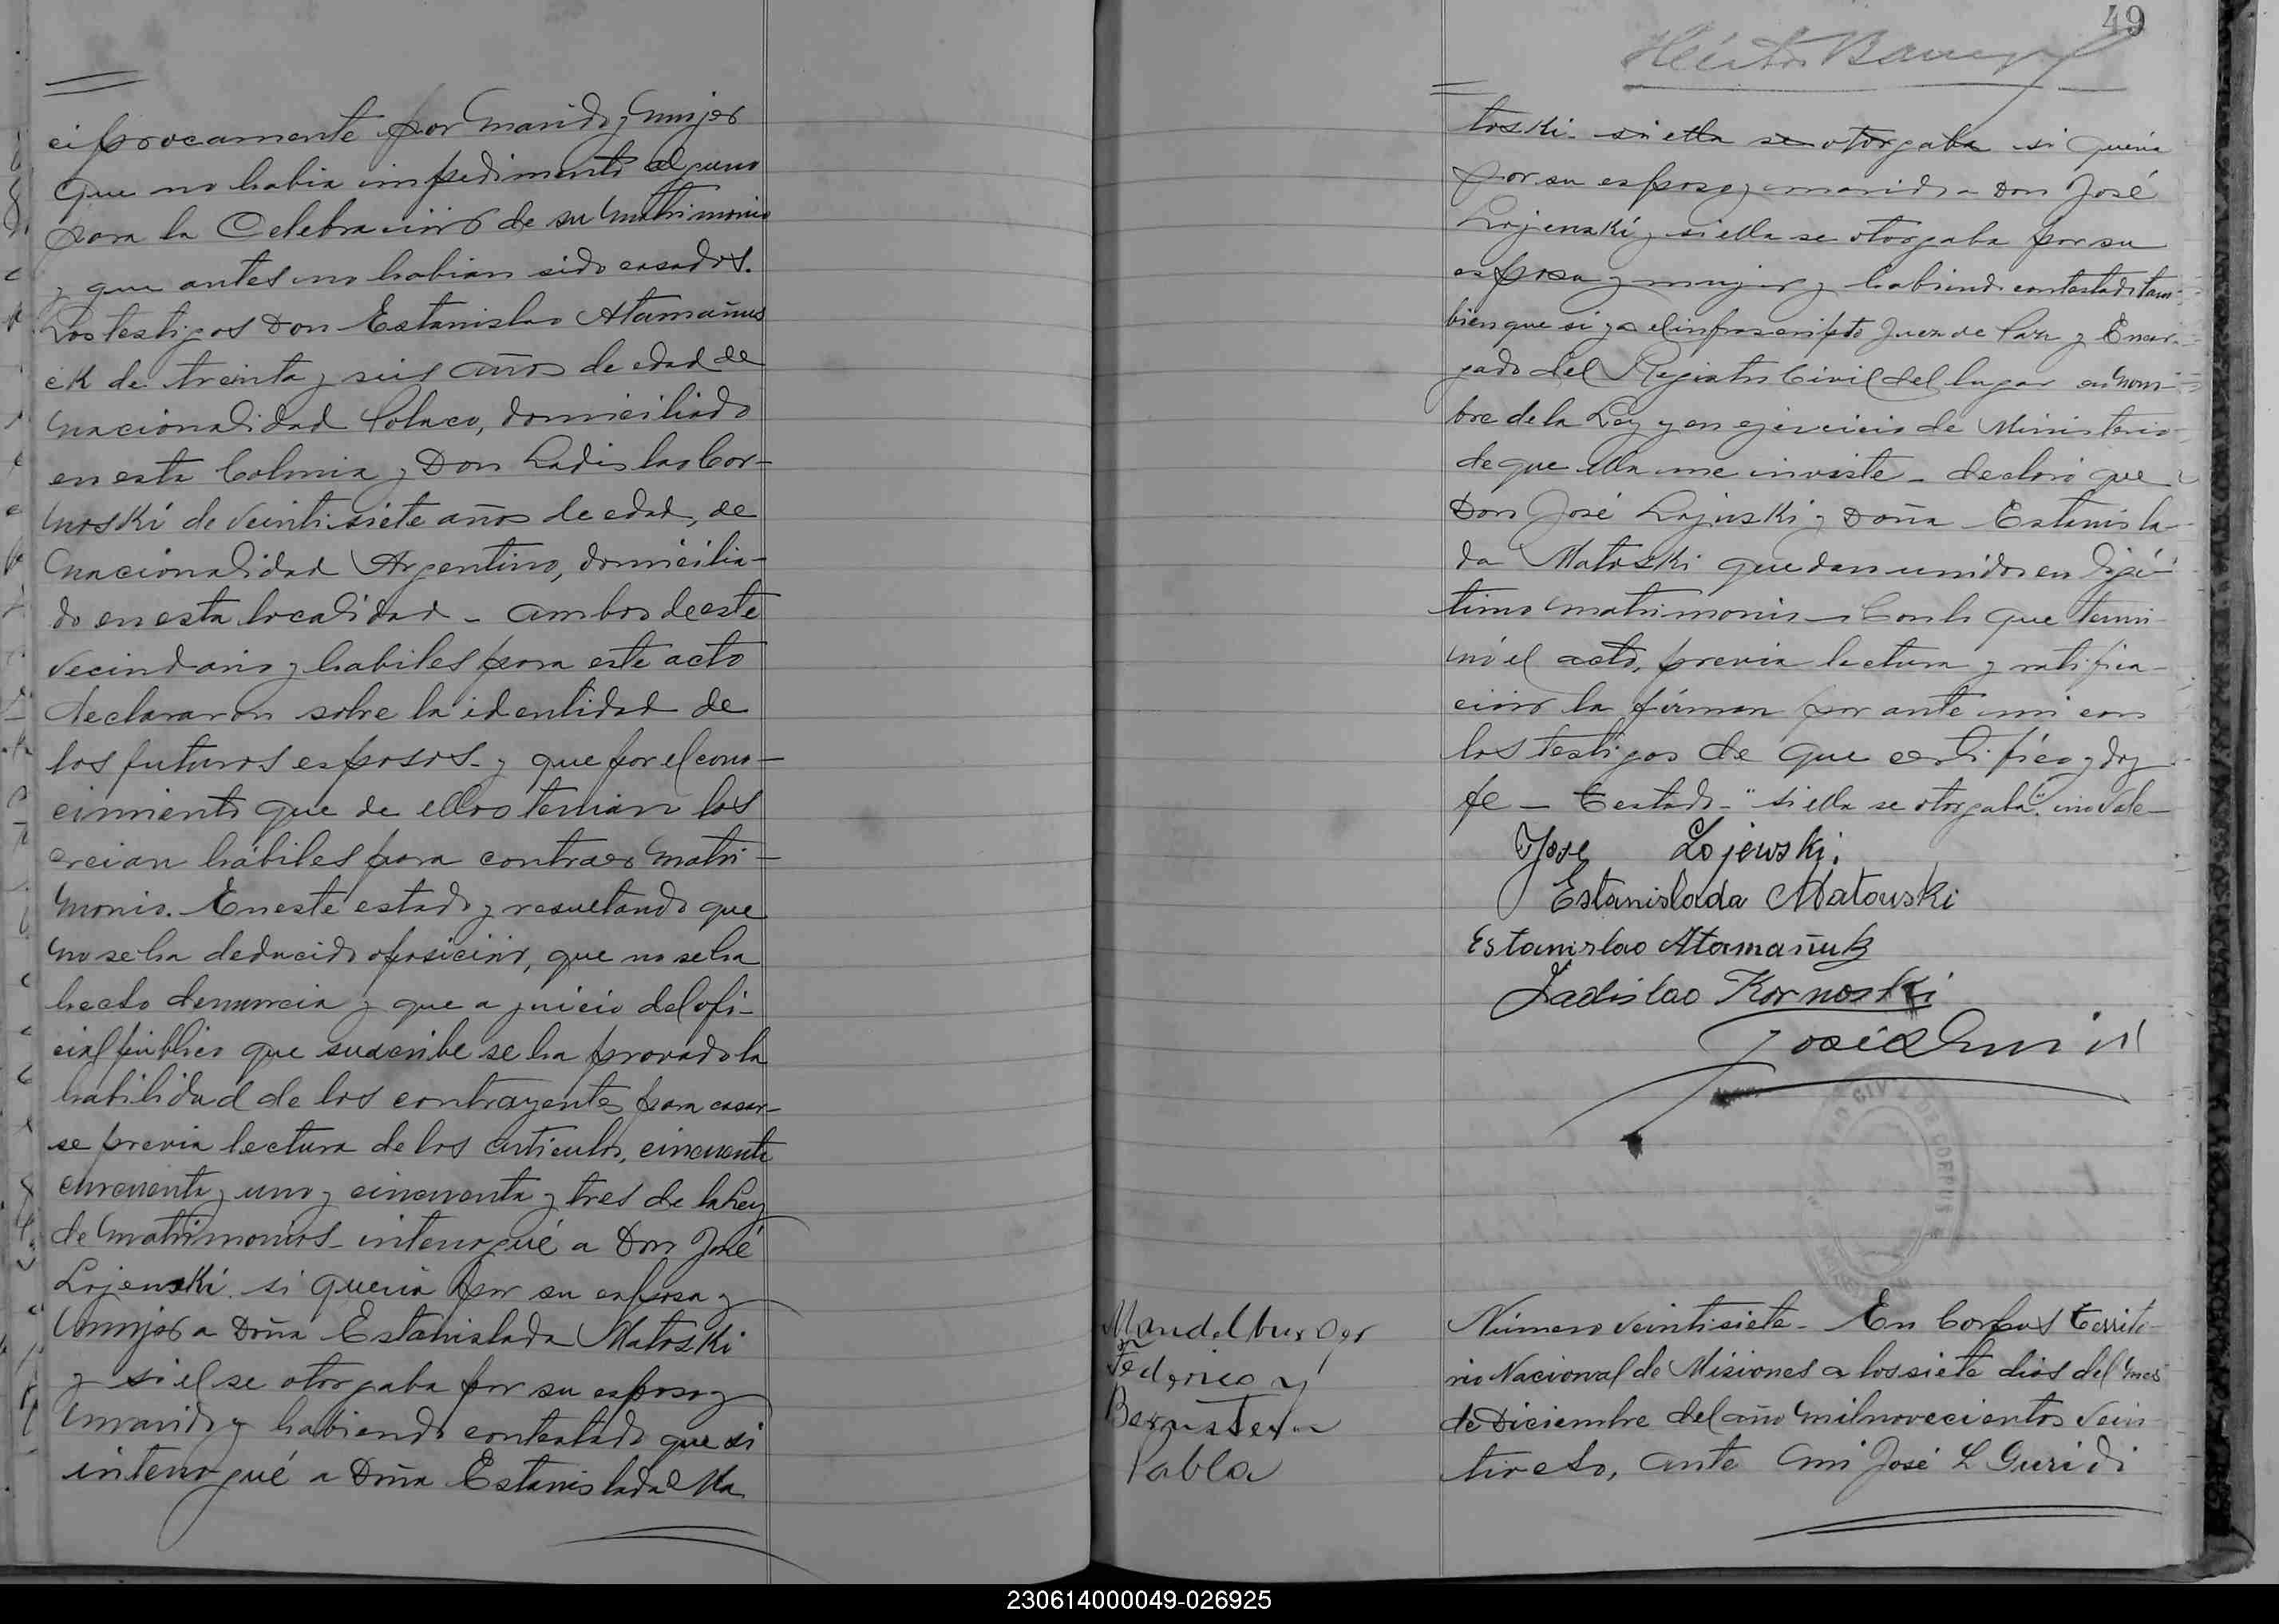 ciprocamente por marido y mujer
que no habia impedimento alguno
para la Celebracion de su matrimonio
y que antes no habian sido casados.
Los testigos Don Estanislao Atamañus
ck de treinta y seis años de edad de
nacionalidad Polaco, domiciliado
en esta Colonia y Don Ladislao Cor-
noski de veintisiete años de edad, de
nacionalidad Argentino, domicilia-
do en esta localidad - ambos de este
vecindario y habiles para este acto
declararon sobre la identidad de
los futuros esposos - y que por el cono-
cimiento que de ellos tenian los
creian hábiles para contraer matri-
monio. En este estado y resultando que
no se ha deducido oposicion, que no se ha
hecho denuncia y que a juicio del ofi-
cial público que suscribe se ha provado la
habilidad de los contrayentes para casar-
se previa lectura de los articulos, cincuenta
cincuenta y uno y cincuenta y tres de la Ley
de matrimonios - interrogué a Don José
Lojenski si queria por su esposa y
mujer a Doña Estanislada Matoski
y si el se otorgaba por su esposo y
marido y habiendo contestado que si
interrogué a Doña Estanislada Ma
49
Héctor
toski - si ella se otorgaba si queria
por su esposo y marido a Don José
Lojenski y si ella se otorgaba por su
esposa y mujer y habiendo contestado tam-
bien que si yo el infrascripto Juez de Paz y Encar-
gado del Registro Civil del lugar en nom-
bre de la Ley y en ejercicio de Ministerio
de que ella me inviste - declaro que
Don José Lojenski y Doña Estanisla-
da Matoski quedan unidos en legi-
timo matrimonio - Con lo que termi-
nó el acto, previa lectura y ratifica-
cion la firman por ante mi con
los testigos de que certifico y doy
fe - Testado - "si ella se otorgaba" no vale -
Jose Lojewski.
Estanislada Matouski
Estanislao Atamañuk
Ladislao Kornoski
Mandelburger
Federico y
Bernstein
Pabla
Número veintisiete - En Corpus Territo-
rio Nacional de Misiones a los siete dias del mes
de Diciembre del año mil novecientos vein-
tiocho, ante mi José L Guridi
230614000049-026925